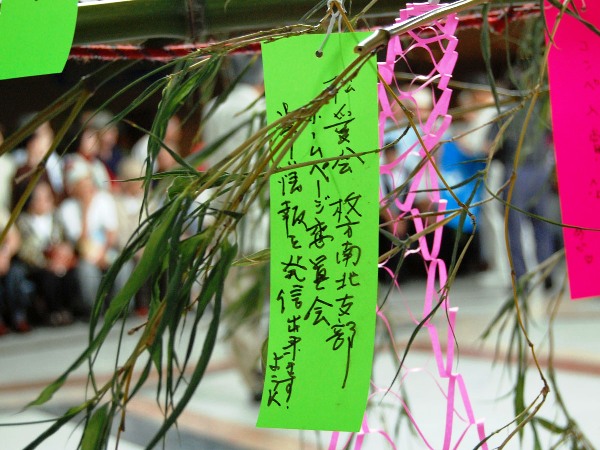 松愛会 枚方南北支部
ホームページ委員会
情報を発信出来ます
ように